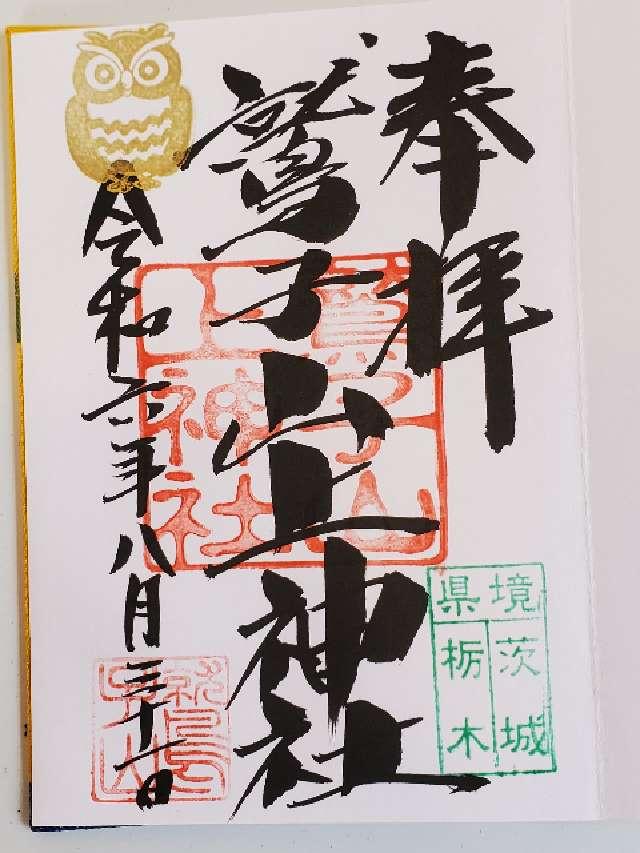 奉拝
鷲子山上神社
令和六年八月三十一日
鷲子山上神社
県境
茨城
栃木